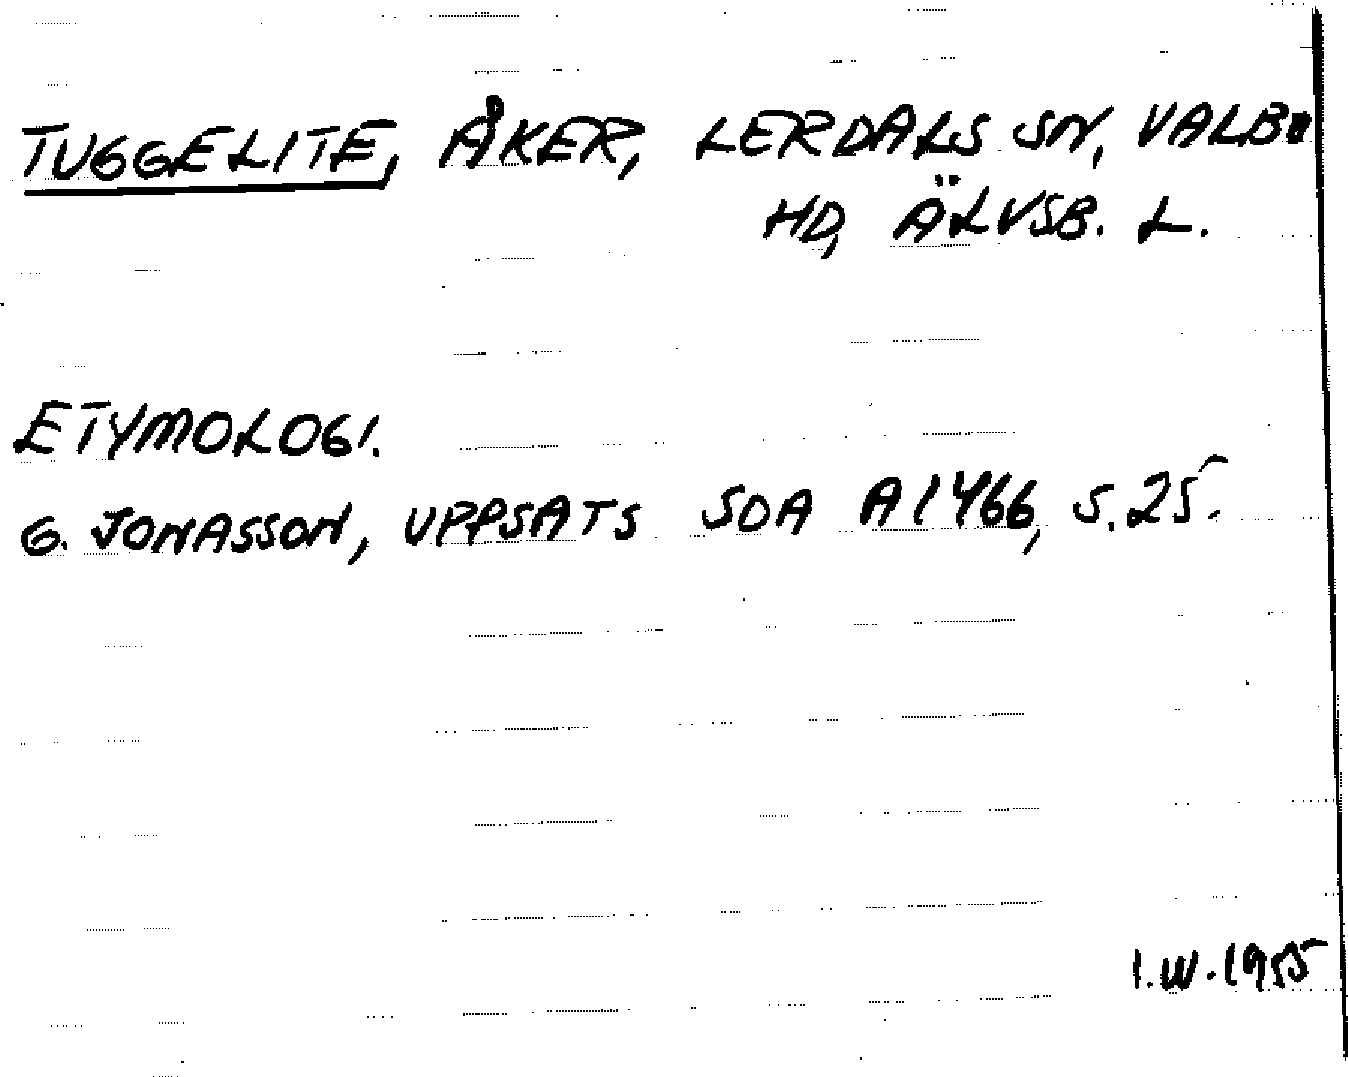 TUGGELITE, ÅKER, LERDALS SN, VALBO
HD, ÄLVSB. L.
ETYMOLOGI.
G. JONASSON, UPPSATS SOA A1466, S.25.
I.W.1955